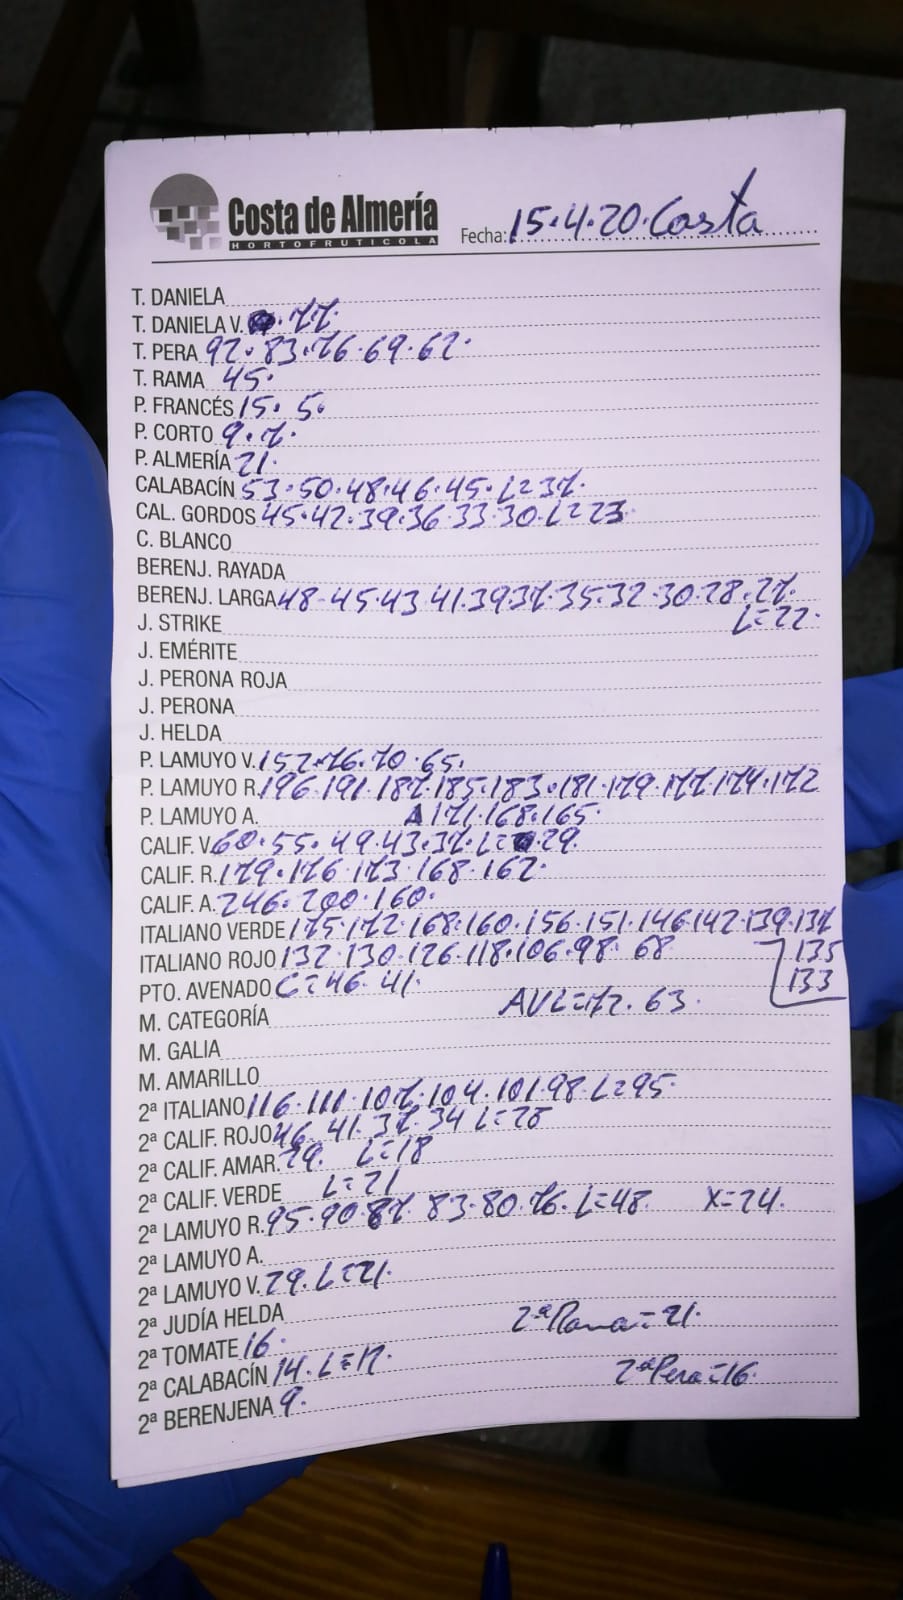 Costa de Almería
HORTOFRUTICOLA
Fecha: 15.4.20. Costa
T. DANIELA
T. DANIELA V. 77.
T. PERA 92. 83. 76. 69. 62.
T. RAMA 45.
P. FRANCÉS 15. 5.
P. CORTO 9. 7.
P. ALMERÍA 21.
CALABACÍN 53. 50. 48. 46. 45. L=37.
CAL. GORDOS 45. 42. 39. 36 33. 30. L=23
C. BLANCO
BERENJ. RAYADA
BERENJ. LARGA 48. 45. 43 41. 39. 37. 35. 32. 30. 28. 27.
L=22.
J. STRIKE
J. EMÉRITE
J. PERONA ROJA
J. PERONA
J. HELDA
P. LAMUYO V. 152. 76. 70. 65.
P. LAMUYO R. 196. 191. 187. 185. 183. 181. 179. 177. 174. 172
P. LAMUYO A. 171. 168. 165.
CALIF. V. 60. 55. 49. 43. 37. L= 29.
CALIF. R. 179. 176 173. 168. 162.
CALIF. A. 246. 200. 160.
ITALIANO VERDE 175. 172. 168. 160. 156. 151. 146. 142. 139. 137
135
133
ITALIANO ROJO 132. 130. 126. 118. 106. 98. 68
PTO. AVENADO C=46. 41.
AVL=72. 63.
M. CATEGORÍA
M. GALIA
M. AMARILLO
2ª ITALIANO 116. 111. 107. 104. 101. 98. L=95.
2ª CALIF. ROJO 46. 41. 37. 34 L=28
2ª CALIF. AMAR. 29. L=18
2ª CALIF. VERDE L=21
2ª LAMUYO R. 95. 90. 87. 83. 80. 76. L=48. X=24.
2ª LAMUYO A.
2ª LAMUYO V. 29. L=21.
2ª JUDÍA HELDA
2ª Rama=21.
2ª TOMATE 16.
2ª CALABACÍN 14. L=12.
2ª Pera=16.
2ª BERENJENA 9.